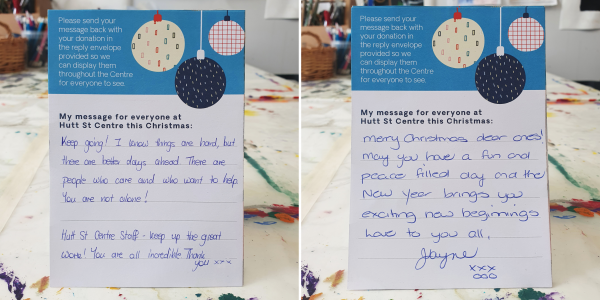 Please send your
message back with
your donation in
the reply envelope
provided so we
can display them
throughout the Centre
for everyone to see.
My message for everyone at
Hutt St Centre this Christmas:
Keep going! I know things are hard, but
there are better days ahead. There are
people who care and who want to help.
You are not alone!
Hutt St Centre Staff - keep up the great
work! You are all incredible Thank
you xxx
Please send your
message back with
your donation in
the reply envelope
provided so we
can display them
throughout the Centre
for everyone to see.
My message for everyone at
Hutt St Centre this Christmas:
Merry Christmas dear ones!
May you have a fun and
peace filled day and the
New Year brings you
exciting new beginnings
Love to you all,
Jayne
xxx
ooo